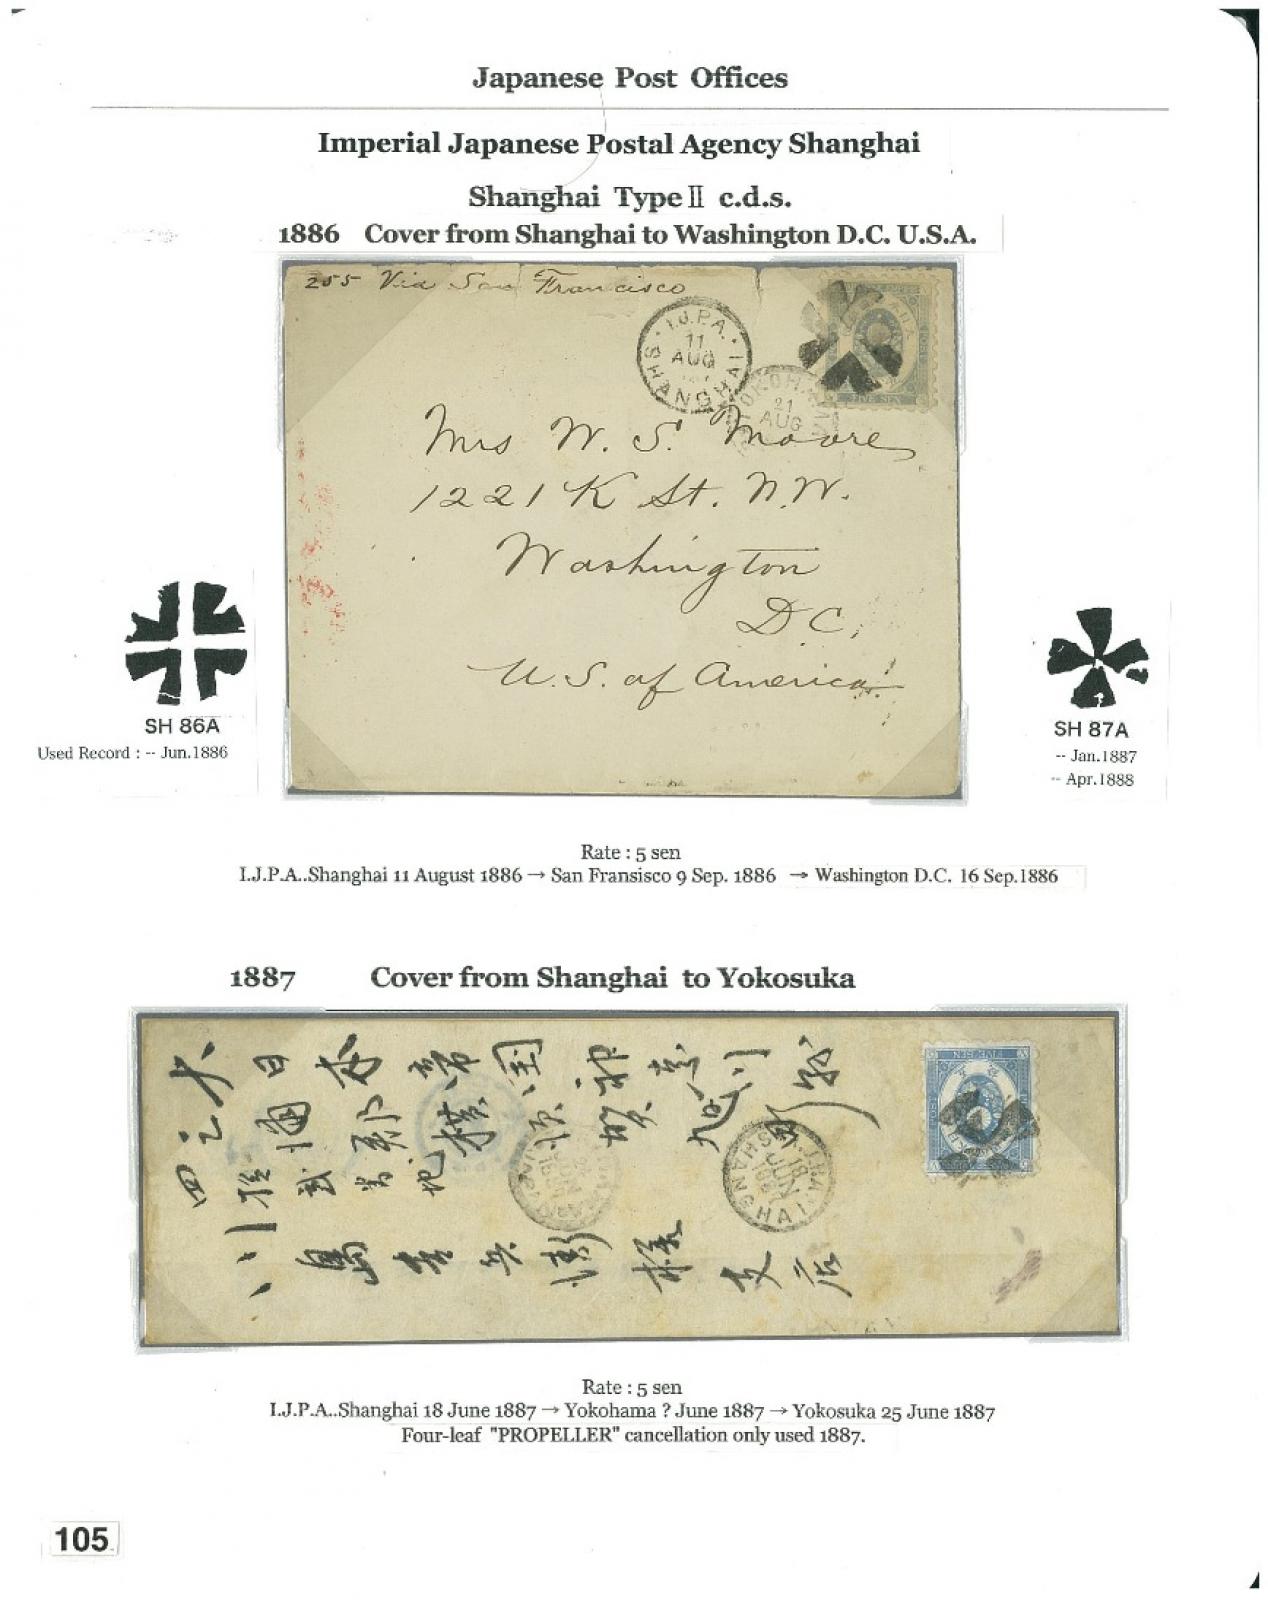 Japanese Post Offices
Imperial Japanese Postal Agency Shanghai
Shanghai Type Ⅱ c.d.s.
1886 Cover from Shanghai to Washington D.C. U.S.A.
255 Via San Francisco
I.J.P.A.
11
AUG
SHANGHAI
YOKOHAMA
21
AUG
FIVE SEN
Mrs W. S. Moore
1221 K St. N.W.
Washington
D.C.
U.S. of America
SH 86A
Used Record : -- Jun.1886
SH 87A
-- Jan.1887
-- Apr.1888
Rate : 5 sen
I.J.P.A..Shanghai 11 August 1886 → San Fransisco 9 Sep. 1886 → Washington D.C. 16 Sep.1886
1887 Cover from Shanghai to Yokosuka
大日本帝国
FIVE SEN
I.J.P.A.
18
JUN
SHANGHAI
支店
Rate : 5 sen
I.J.P.A..Shanghai 18 June 1887 → Yokohama ? June 1887 → Yokosuka 25 June 1887
Four-leaf "PROPELLER" cancellation only used 1887.
105